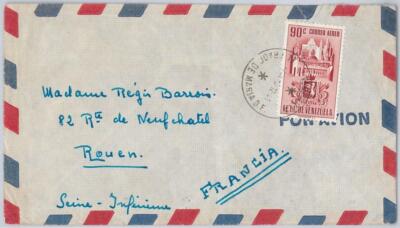 90 c CORREO AEREO
EE.UU. DE VENEZUELA
POR AVION
Madame Régis Barrois.
82 Rte de Neufchatel
Rouen.
Seine-Inférieure
FRANCIA.